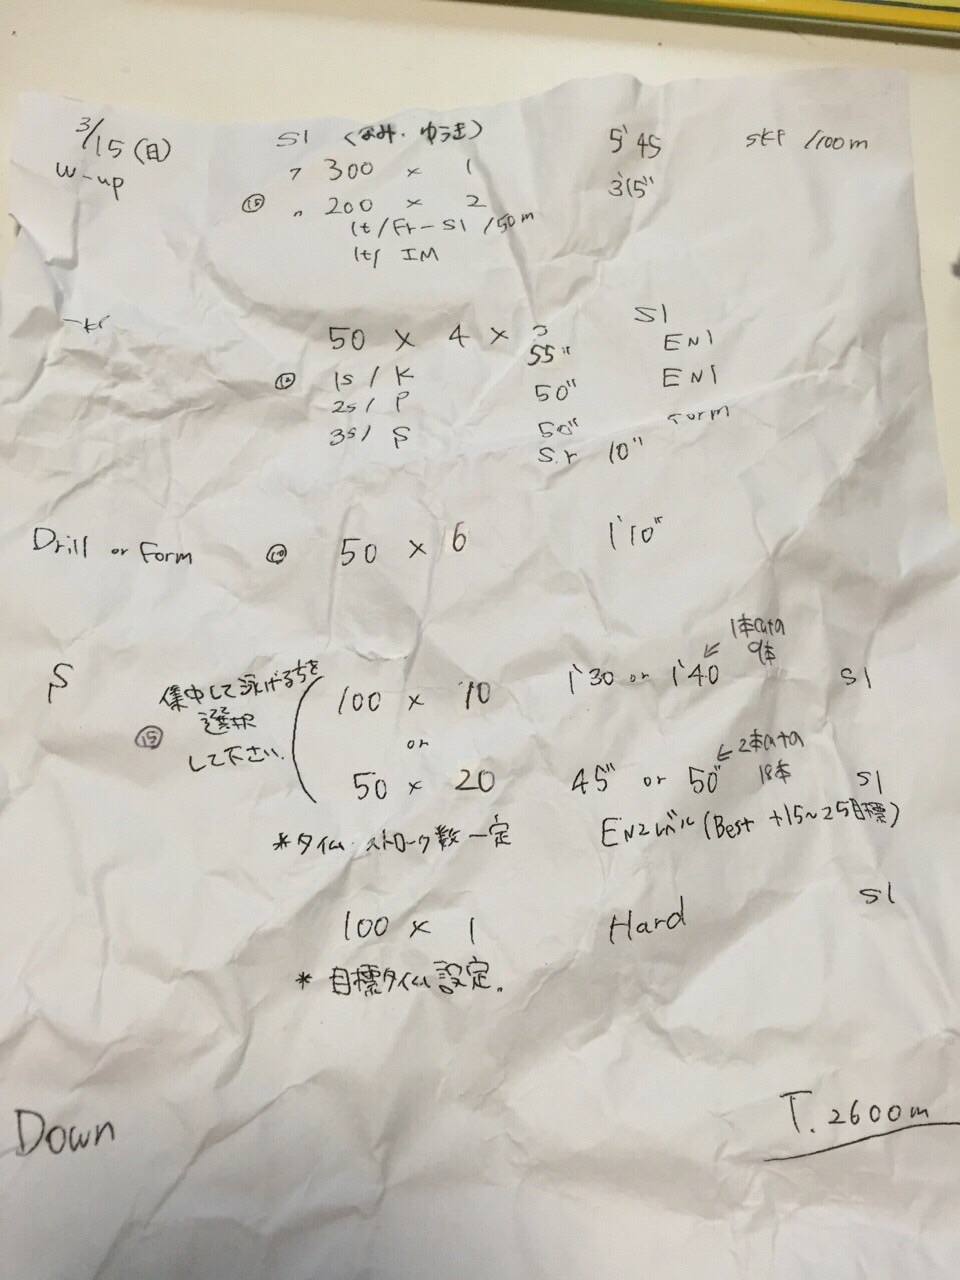 3/15(日) S1 (なみ・ゆうき) 5'45 SKP /100m
W-up 〃 300 × 1 3'15"
⑮ 〃 200 × 2
1t/Fr-S1 /50m
1t/ IM
50 × 4 × 3 S1
⑩ 1s/ K 55" EN1
2s/ P 50" EN1
3s/ S 50" Form
S.r 10"
Drill or Form ⑩ 50 × 6 1'10"
S 集中して泳げる方を選択して下さい。
⑮ 100 × 10 1'30 or 1'40 ← 1本 9本 S1
or
50 × 20 45" or 50" ← 2本 18本 S1
*タイム・ストローク数一定 EN2レベル(Best +15~25目標)
100 × 1 Hard S1
* 目標タイム設定。
Down T. 2600m